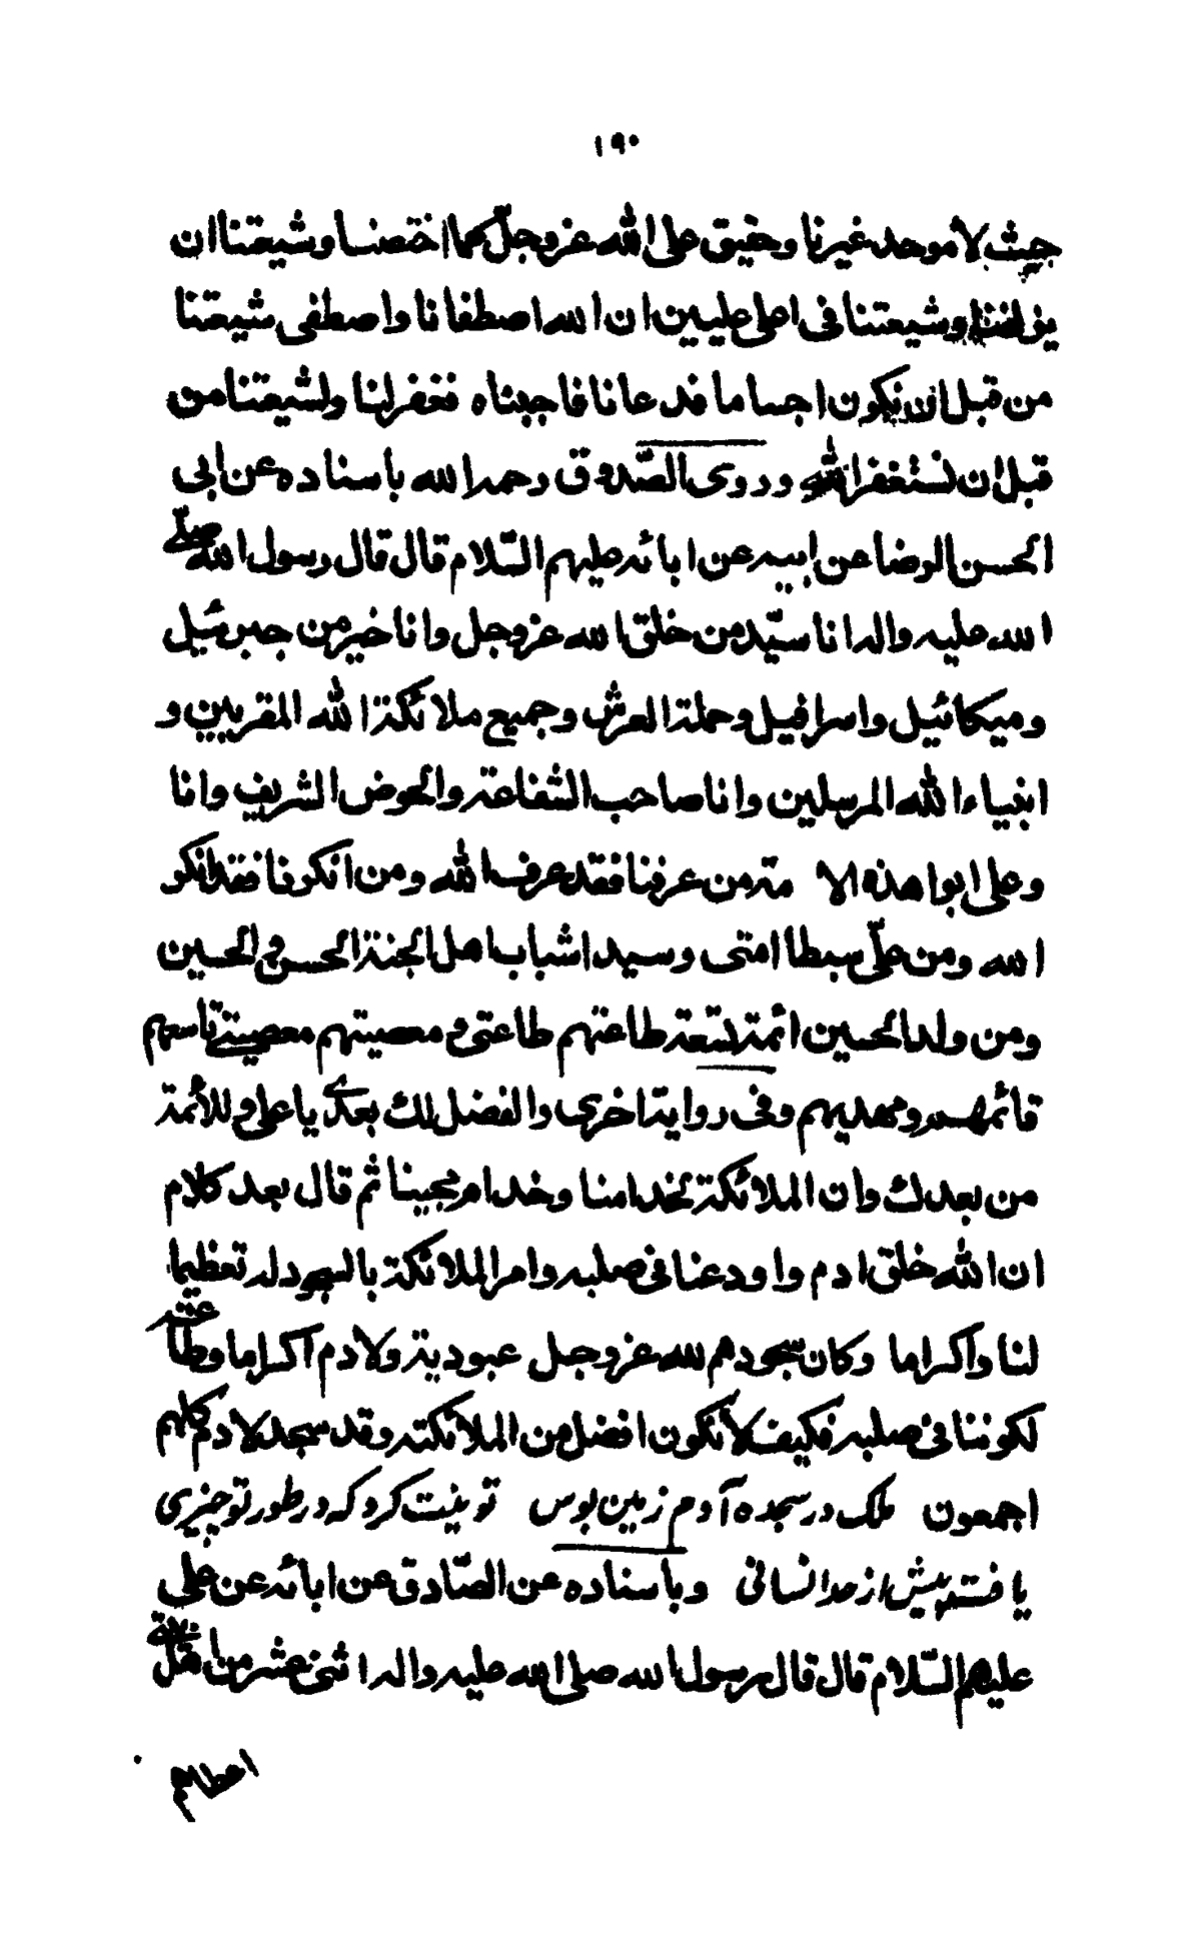 ١٩٠
حيث لا موحد غيرنا وحقيق على الله عز وجلّ كما اختصنا وشيعتنا ان
يزلفنا وشيعتنا فى اعلى عليين ان الله اصطفانا واصطفى شيعتنا
من قبل ان نكون اجساما فدعانا فاجبناه فغفر لنا ولشيعتنا من
قبل ان نستغفر الله وروى الصّدوق رحمه الله باسناده عن ابى
الحسن الرضا عن ابيه عن ابائه عليهم السّلام قال قال رسول الله صلى
الله عليه واله انا سيّد من خلق الله عز وجل وانا خير من جبرئيل
وميكائيل واسرافيل وحملة العرش وجميع ملائكة الله المقربين و
انبياء الله المرسلين وانا صاحب الشفاعة والحوض الشريف وانا
وعلى ابوا هذه الا مة من عرفنا فقد عرف الله ومن انكرنا فقد انكر
الله ومن علّى سبطا امتى وسيدا شباب اهل الجنة الحسن و الحسين
ومن ولد الحسين ائمة تسعة طاعتهم طاعتى و معصيتهم معصيتى تاسعهم
قائمهم ومهديهم وفى رواية اخرى والفضل لك بعدى يا على وللائمة
من بعدك وان الملائكة لخدامنا وخدام محبينا ثم قال بعد كلام
ان الله خلق ادم واودعنا فى صلبه وامر الملائكة بالسجود له تعظيما
لنا واكراما وكان سجودهم لله عز وجل عبودية ولادم اكراما وطاعة
لكوننا فى صلبه فكيف لا نكون افضل من الملائكته وقد سجد لادم كلهم
اجمعون ملک در سجده آدم زمین بوس تو نیت کرد که در طور تو چیزی
یافته پیش از حد انسانی وباسناده عن الصّادق عن ابائه عن على
عليهم السّلام قال قال رسول الله صلى الله عليه واله اثنى عشر من اهل
اعطاهم